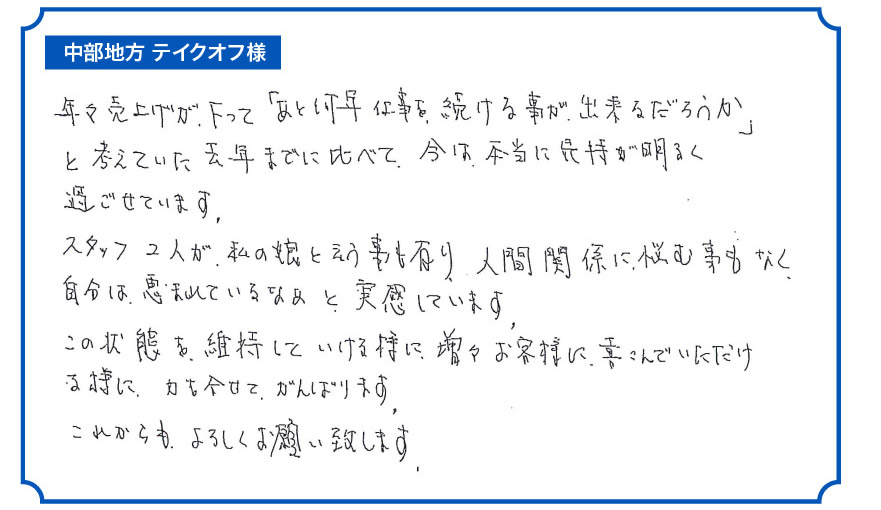 中部地方 テイクオフ様
年々売上げが、下って「あと何年仕事を、続ける事が、出来るだろうか」
と考えていた去年までに比べて、今は、本当に気持が明るく
過ごせています。
スタッフ2人が、私の娘と云う事も有り、人間関係に、悩む事もなく、
自分は、恵まれているなぁと、実感しています。
この状態を、維持していける様に、増々お客様に、喜こんでいただけ
る様に、力を合せて、がんばります。
これからも、よろしくお願い致します。